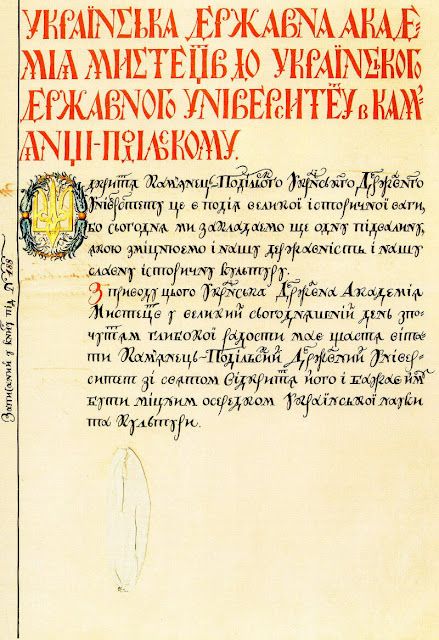 УКРАЇНСЬКА ДЕРЖАВНА АКАДЕ-
МІЯ МИСТЕЦТВ ДО УКРАЇНСЬКОГО
ДЕРЖАВНОГО УНІВЕРСИТЕТУ в КАМ'-
ЯНЦІ-ПОДІЛЬСКОМУ.
Одкриття Камянець-Подільського Українського Державного
Університету це є подія великої історичної ваги,
бо сьогодня ми закладаємо ще одну підвалину,
якою зміцнюємо і нашу державність і нашу
славну історичну культуру.
З приводу цього Українська Державна Академія
Мистецтв у великий сьогоднашній день з по-
чуттям глибокої радости має щастя віта-
ти Камянець-Подільський Державний Універ-
ситет зі святом відкриття його і бажає йому
бути міцним осередком Української науки
та культури.
Записаний в книгу під №